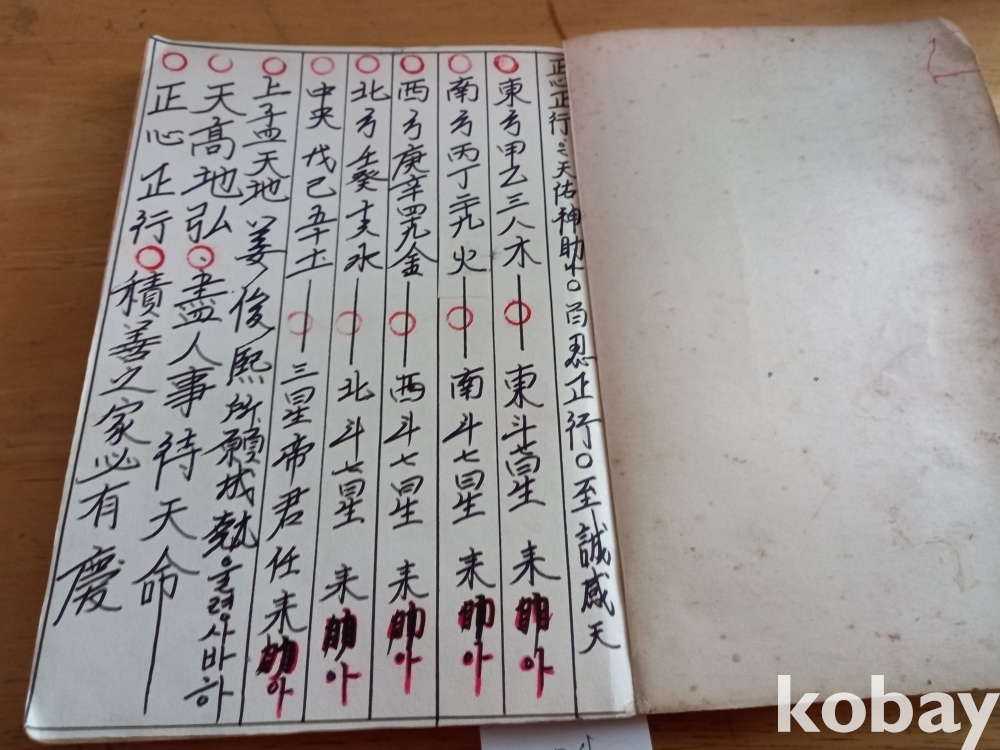 正心正行 天佑神助 ○ 百忍正行 ○ 至誠感天
○ 東方甲乙三八木 ─ ○ ─ 東斗七星 来助아
○ 南方丙丁二九火 ─ ○ ─ 南斗七星 来助아
○ 西方庚辛四九金 ─ ○ ─ 西斗七星 来助아
○ 北方壬癸 水 ─ ○ ─ 北斗七星 来助아
○ 中央戊己五十土 ─ ○ ─ 三星帝君 任来助아
○ 上孟天地 姜俊熙 所願城就 을령사바하
○ 天高地弘 ○ 盡人事待天命
○ 正心正行 ○ 積善之家必有慶
kobay